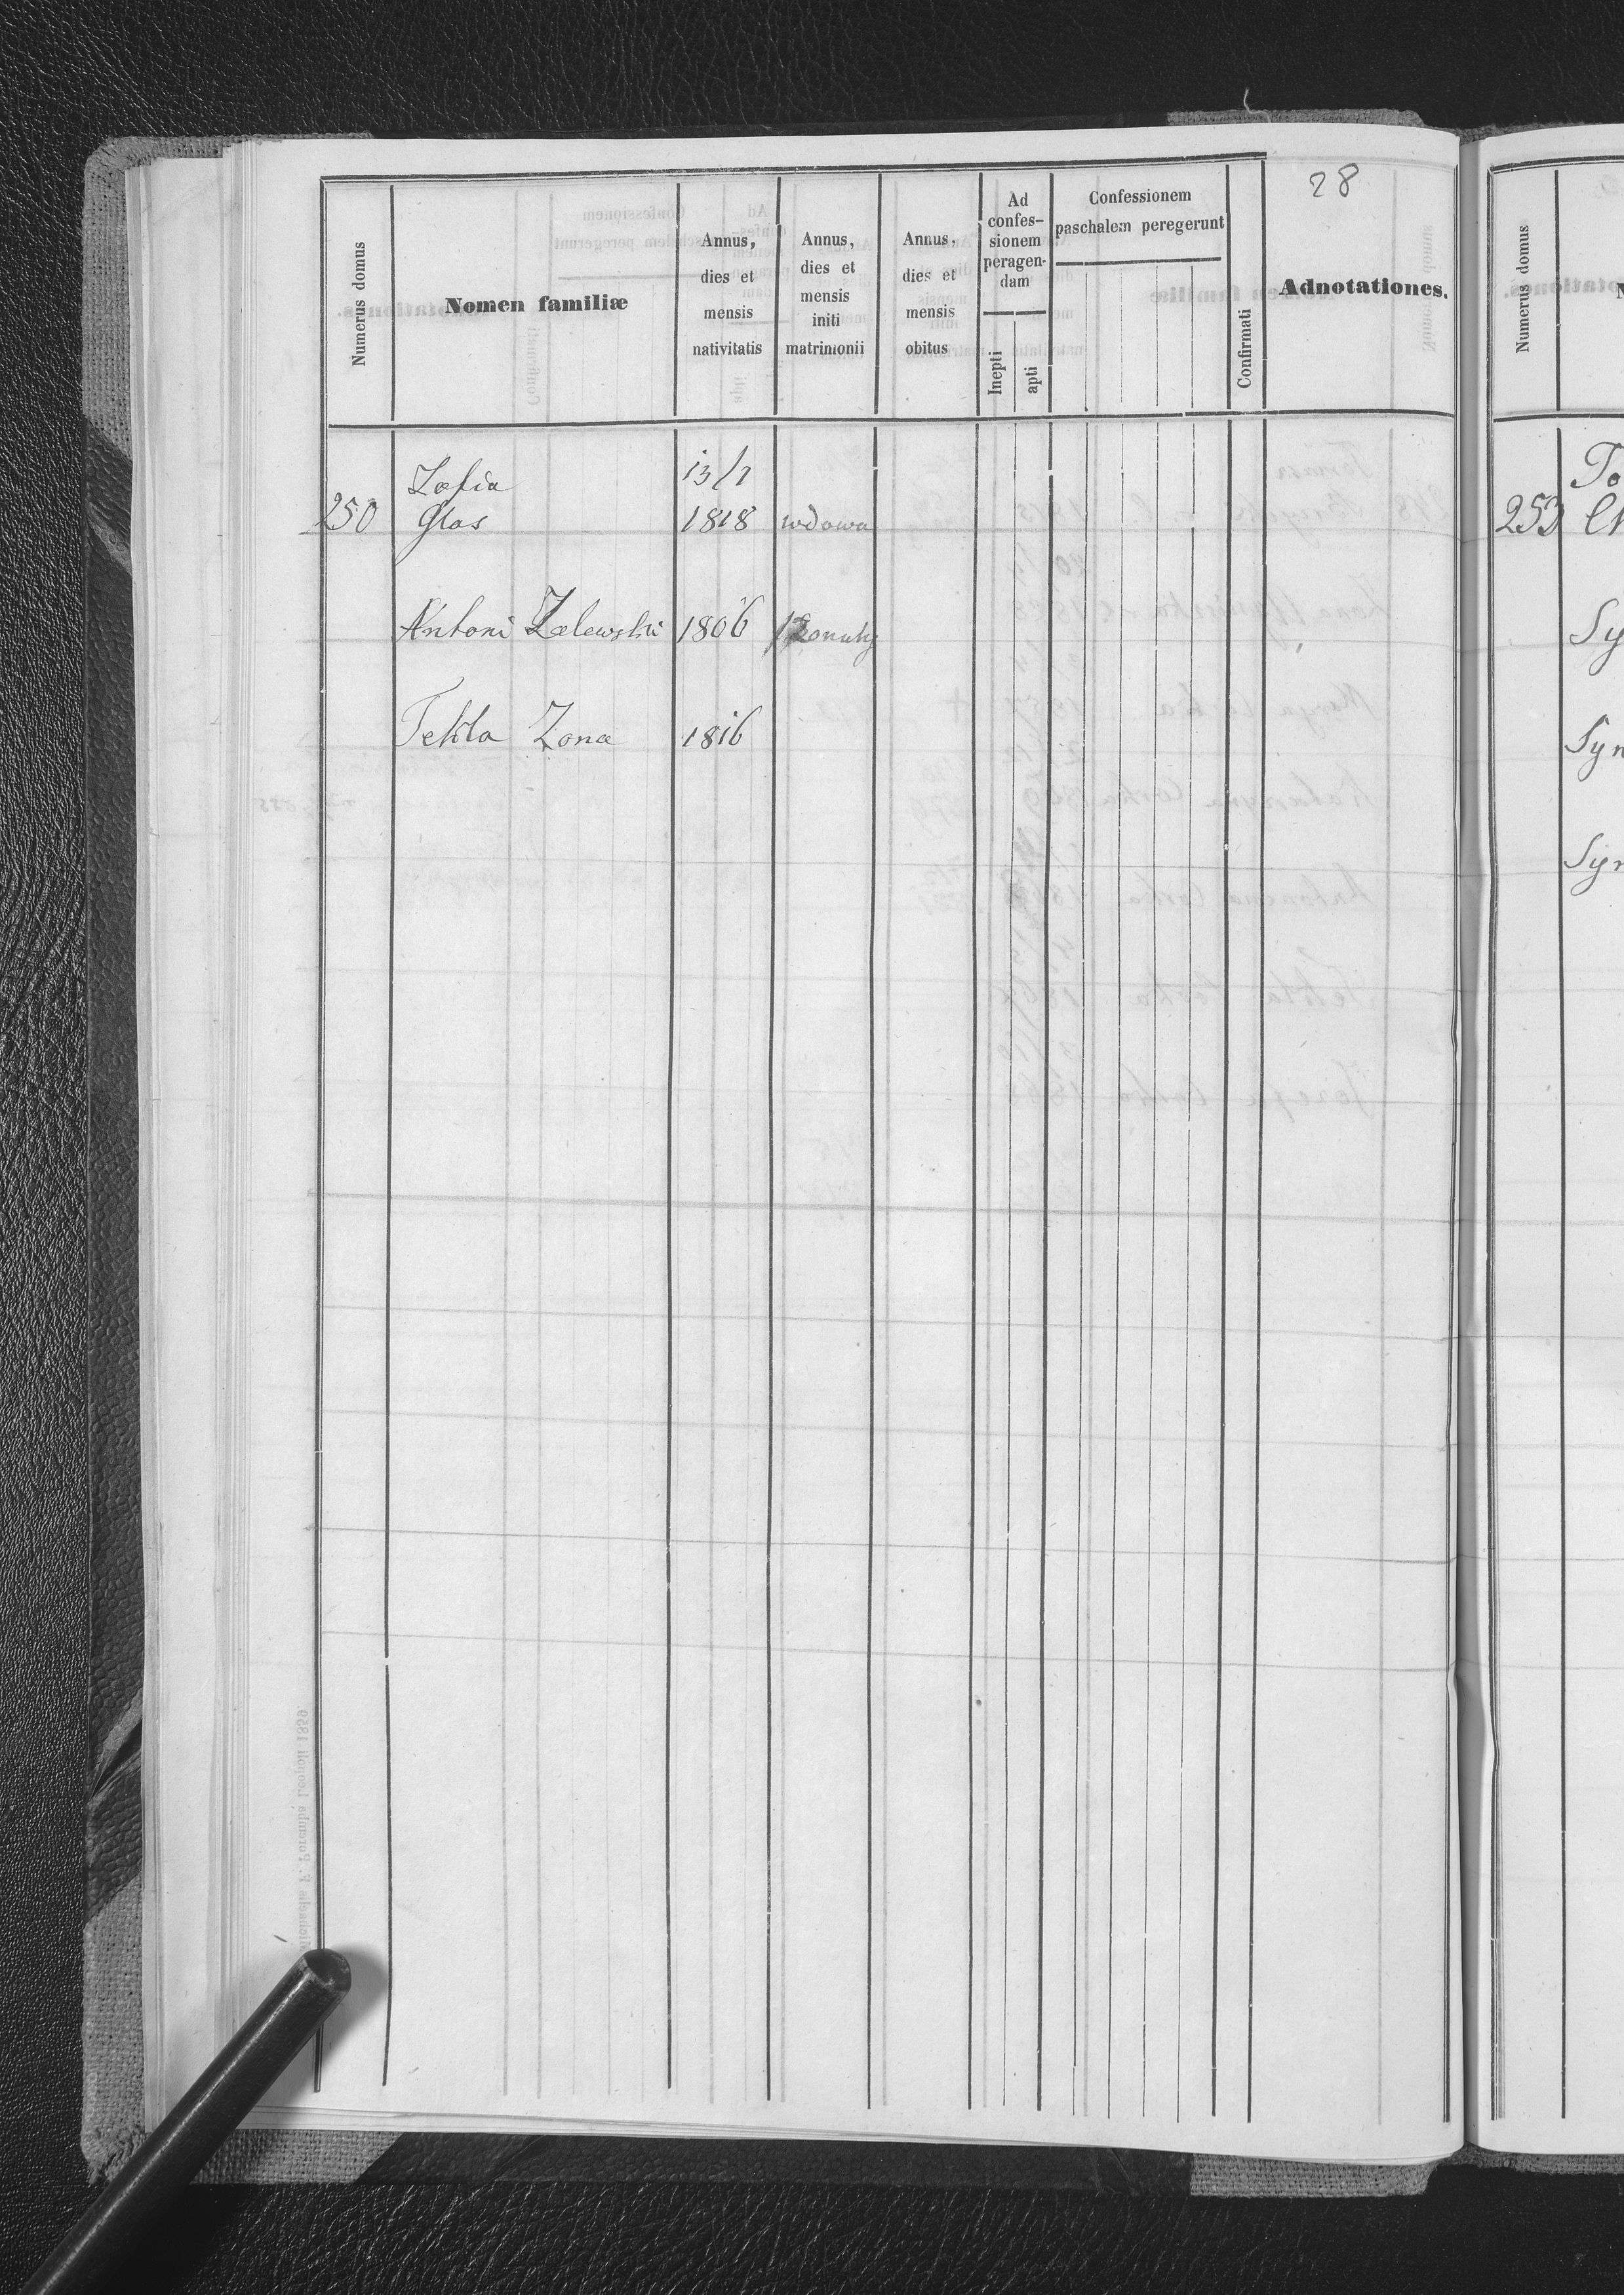 28
Numerus domus
Nomen familiæ
Annus,
dies et
mensis
nativitatis
Annus,
dies et
mensis
initi
matrimonii
Annus,
dies et
mensis
obitus
Ad
confes-
sionem
peragen-
dam
Inepti
apti
Confessionem
paschalem peregerunt
Confirmati
Adnotationes.
Numerus domus
Zofia 13/1
250 Glas 1818 wdowa
Antoni Zalewski 1806
Tekla Zona 1816
253
Sy
Syn
Syn
Michaelis F. Poremba, Leopoli 1859.